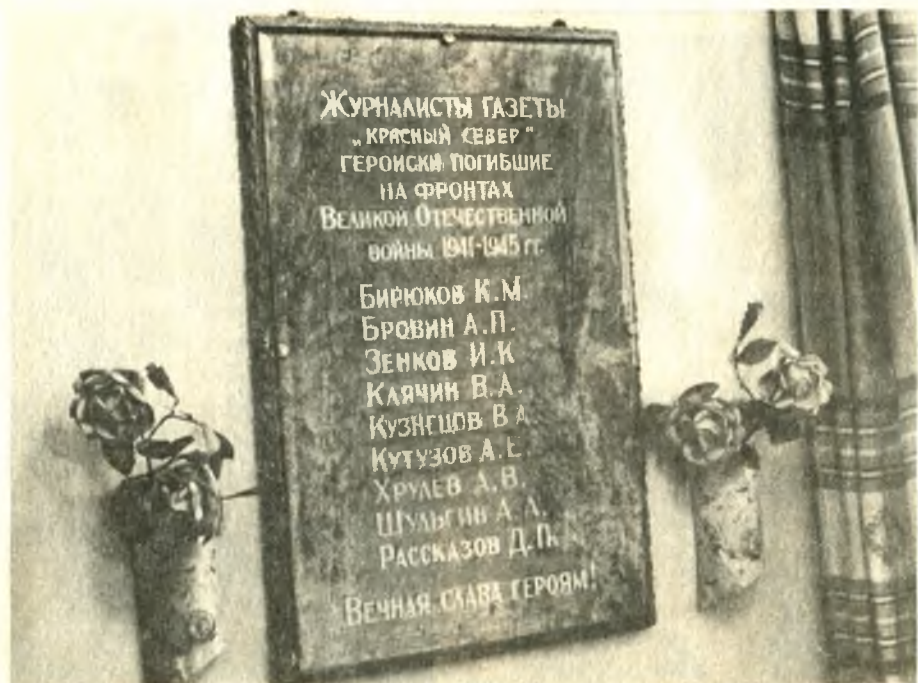 Журналисты газеты
„Красный Север"
героиски погибшие
на фронтах
Великой Отечественной
войны 1941-1945 гг.
Бирюков К.М
Бровин А.П.
Зенков И.К
Клячин В.А.
Кузнецов В А.
Кутузов А.Е
Хрулев А.В.
Шульгин А.А.
Рассказов Д.П.
Вечная слава героям!